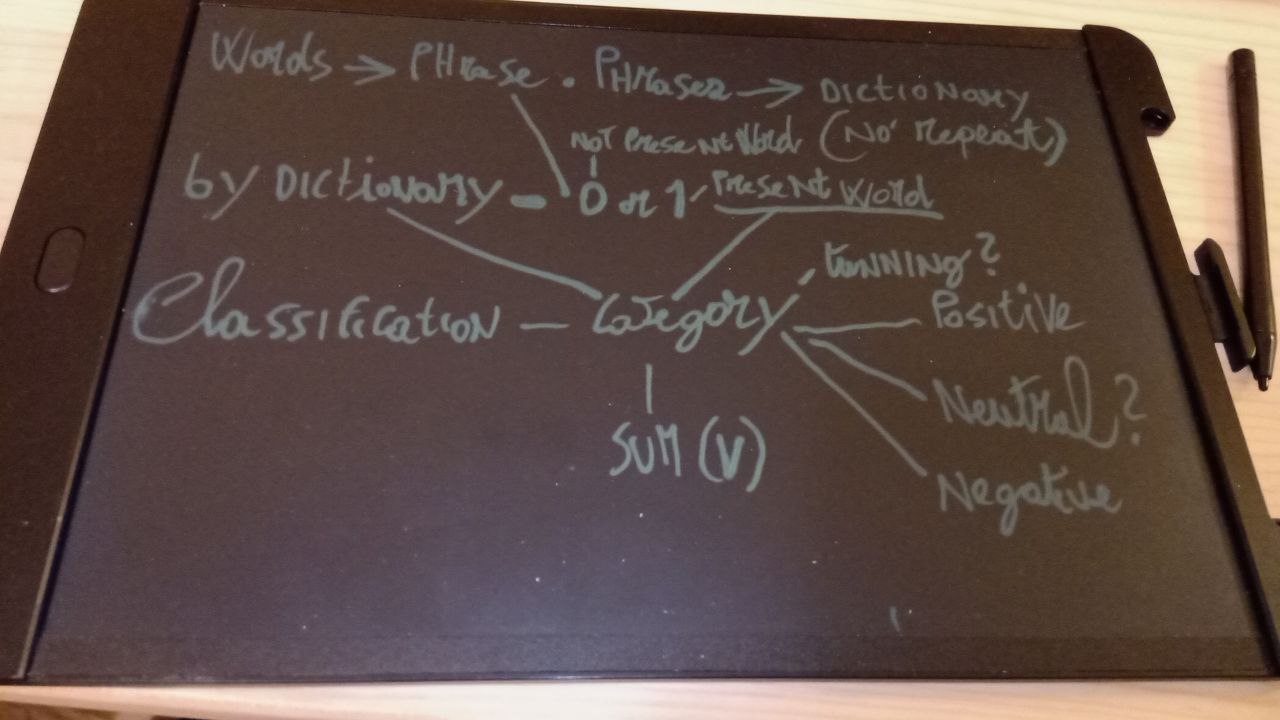 Words → PHrase . PHrases → DICTIONARY
NOT PreseNt Word (No repeat)
by DICtionary - 0 or 1 PreseNt Word
tuNNING?
ClassIFIcatioN - CateGory
Positive
Neutral?
SUM (V)
Negative